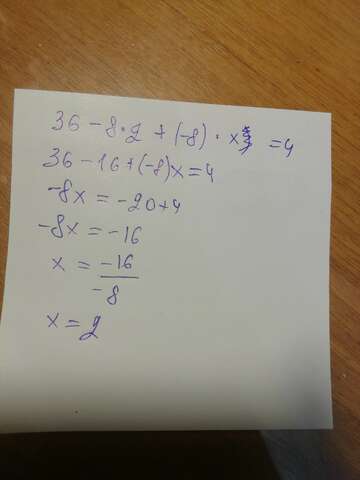 36 - 8 · 2 + (-8) · x = 4
36 - 16 + (-8)x = 4
-8x = -20+4
-8x = -16
x = -16/-8
x = 2